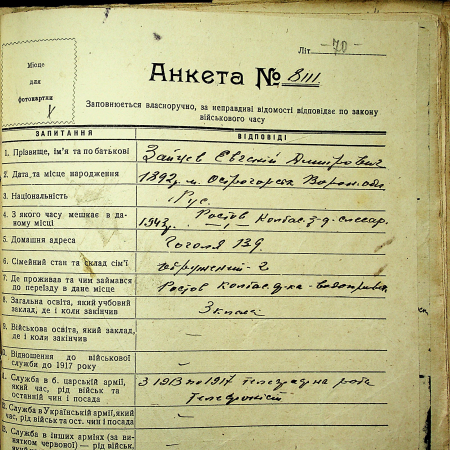 Літ. 70
Місце
для
фотокартки
Анкета № 8111.
Заповнюється власноручно, за неправдиві відомості відповідає по закону
військового часу
ЗАПИТАННЯ ВІДПОВІДІ
1. Прізвище, ім'я та по батькові Зайцев Євгеній Дмітрович
2. Дата та місце народження 1892 р. м. Острогорск
3. Національність Рус.
4. З якого часу мешкає в да-
ному місці 1943 р. Ростов
5. Домашня адреса Гоголя 139
6. Сімейний стан та склад сім'ї Одружений - 2
7. Де проживав та чим займався
до переїзду в дане місце Ростов
8. Загальна освіта, який учбовий
заклад, де і коли закінчив 3 класи
9. Військова освіта, який заклад,
де і коли закінчив —
10. Відношення до військової
служби до 1917 року —
Служба в б. царській армії,
який час, рід військ та
останній чин і посада З 1913 по 1917 телеграфна рота
Телефоніст
12. Служба в Українській армії, який
час, рід військ та ост. чин і посада —
13. Служба в інших арміях (за ви-
нятком червоної) — рід військ,